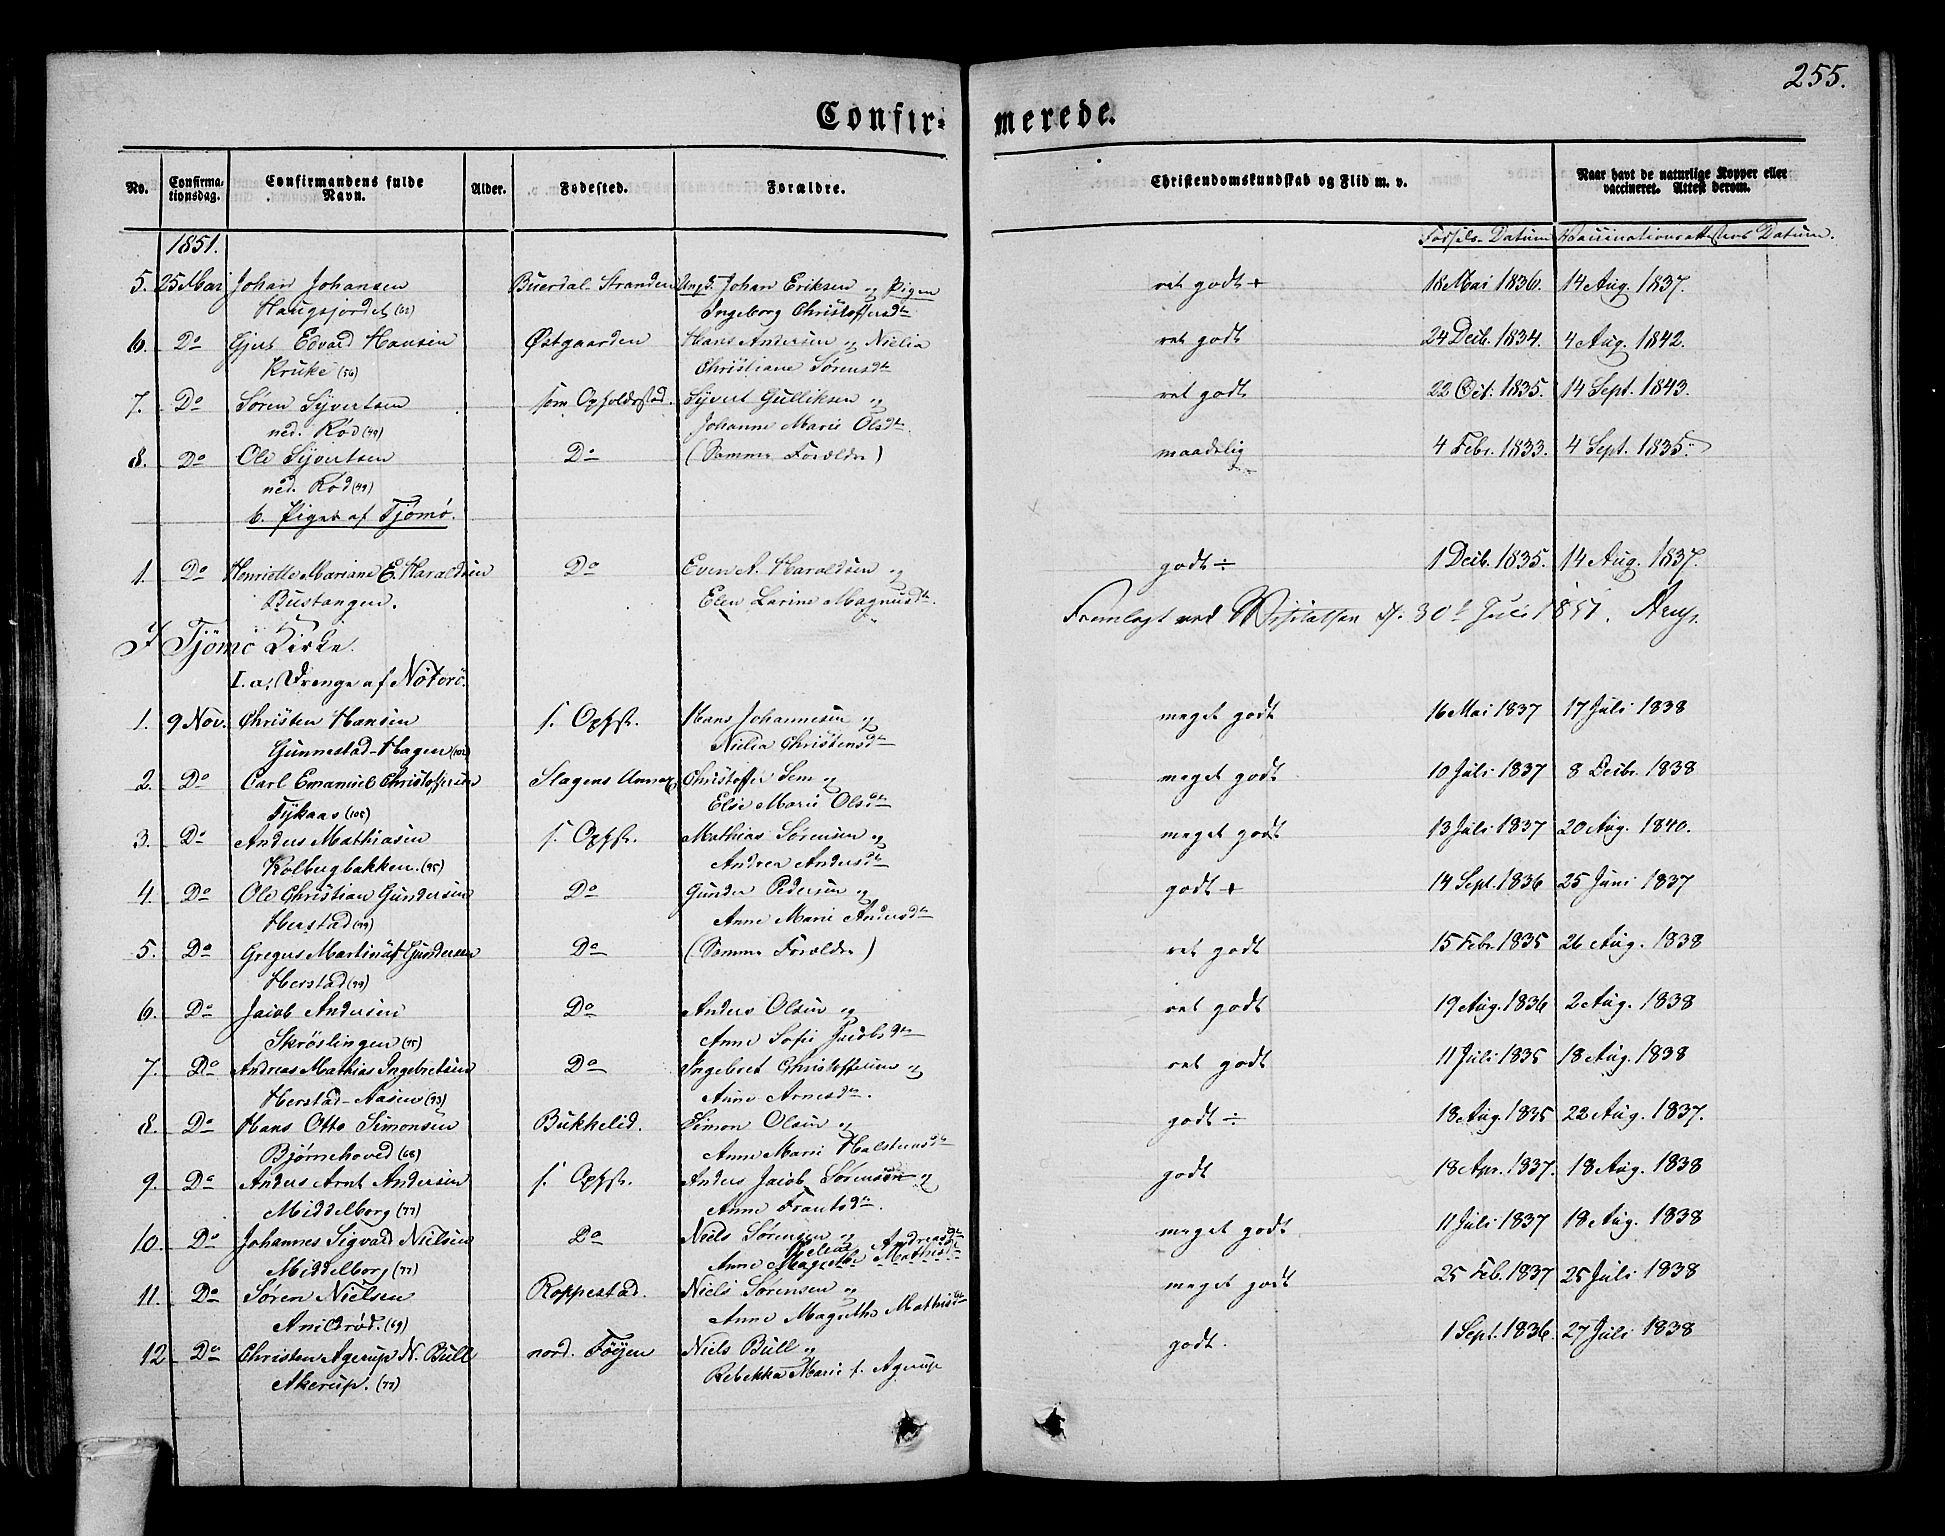 255.
Confir- merede.
No. Confirma- Confirmandens fulde Alder. Fødested. Forældre. Christendomskundskab og Flid m. v. Naar havt de naturlige Kopper eller
tionsdag. Navn. vaccineret. Attest derom.
1851. Fødsels-Datum Vaccinationsattestens Datum.
5. 25 Mai Johan Johansen Buerdal-Stranden Ungk. Johan Eriksen og Pigen ret godt + 18 Mai 1836. 14 Aug. 1837.
Haugsjordet (62) Ingeborg Christoffersdtr
6. Do Gjert Edvard Hansen Østgaarden Hans Andersen og Nielia ret godt 24 Decb. 1834. 4 Aug. 1842.
Kruke (56) Christiane Sørensdtr
7. Do Søren Syvertsen som Opholdsstad. Syvert Gulliksen og ret godt 22 Oct. 1835. 14 Sept. 1843.
ned. Rød (49) Johanne Marie Olsdtr.
8. Do Ole Syvertsen Do (Samme Forældre) maadelig 4 Febr. 1833. 4 Sept. 1835.
ned. Rød (49)
b. Piger af Tjømø.
1. Do Henriette Mariane E. Haraldsen Do Even A. Haraldsen og godt ÷ 1 Decb. 1835. 14 Aug. 1837.
Bustangen. Elen Larine Magnusdtr.
Fremlagt ved Visitatsen d. 30te Juli 1851. Arup.
I Tjømø Kirke.
I. a, Drenge af Nøterø.
1. 9 Nov. Christen Hansen s. Opfst. Hans Johannesen og meget godt 16 Mai 1837 17 Juli 1838
Gunnestad-Hagen (102) Nielia Christensdtr
2. Do Carl Emanuel Christoffersen Slagens Annex Christoffer Sem og meget godt 10 Juli 1837 8 Decbr. 1838
Tykaas (105) Else Marie Olsdtr
3. Do Anders Mathiasen s. Opfst. Mathias Sørensen og meget godt 13 Juli 1837 20 Aug. 1840.
Kolbergbakken. (95) Andrea Andersdtr
4. Do Ole Christian Gundersen Do Gunder Pedersen og godt + 14 Sept. 1836 25 Juni 1837
Herstad (99) Anne Marie Andersdtr
5. Do Gregus Martinus Gundersen Do (Samme Forældre) ret godt 15 Febr. 1835 26 Aug. 1838
Herstad (99)
6. Do Jacob Andersen Do Anders Olsen og ret godt 19 Aug. 1836 2 Aug. 1838
Skrøslingen (95) Anne Sofie Jacobsdtr
7. Do Andreas Mathias Ingebretsen Do Ingebret Christoffersen og ret godt 11 Juli 1835 18 Aug. 1838
Herstad-Aasen (93) Anne Arnesdtr.
8. Do Hans Otto Simonsen Bukkelid. Simon Olsen og godt ÷ 18 Aug. 1835 22 Aug. 1837.
Bjørnehoved (68) Anne Marie Halstensdtr
9. Do Anders Arnt Andersen s. Opfst. Anders Jacob Sørensen og godt 18 Apr. 1837. 18 Aug. 1838
Middelborg (77) Anne Frantsdtr.
10. Do Johannes Sigvard Nielsen Do Niels Sørensen og meget godt 11 Juli 1837 18 Aug. 1838
Middelborg (77) Anne Helene Andreasdtr Magrethe Mathisdtr
11. Do Søren Nielsen Roppestad. Niels Sørensen og meget godt 25 Feb. 1837 25 Juli 1838
Anildrød. (69) Anne Magrethe Mathisdtr
12 Do Christen Agerup N. Bull nord. Føyen Niels Bull og godt. 1 Sept. 1836. 27 Juli 1838
Akerup. (77) Rebekka Marie f. Agerup